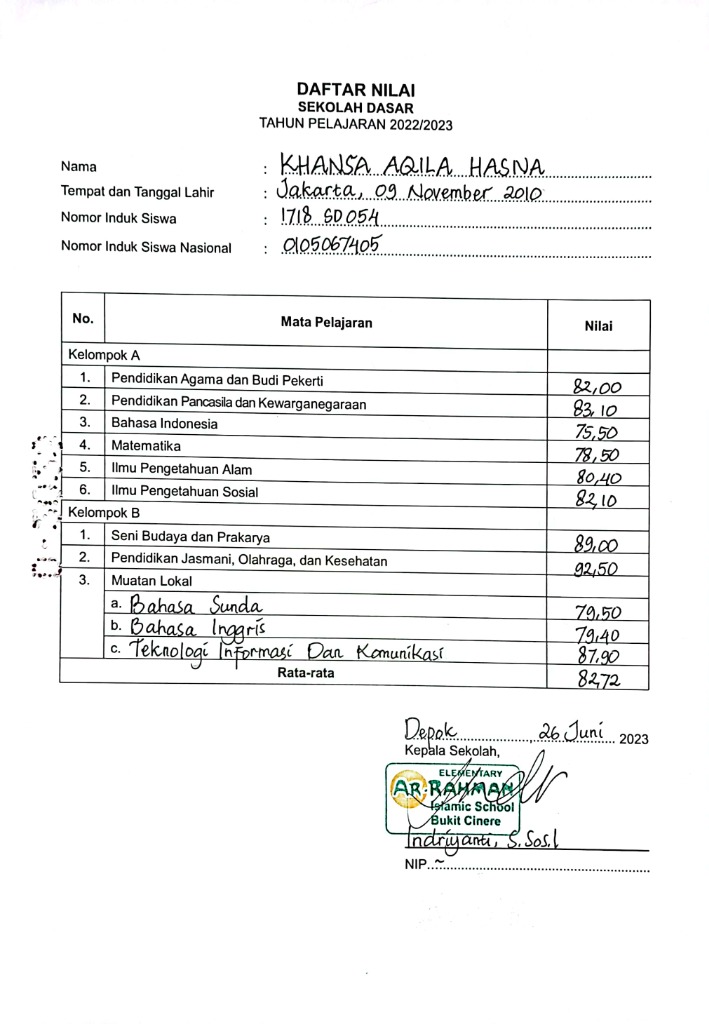 DAFTAR NILAI
SEKOLAH DASAR
TAHUN PELAJARAN 2022/2023
Nama : KHANSA AQILA HASNA
Tempat dan Tanggal Lahir : Jakarta, 09 November 2010
Nomor Induk Siswa : 1718 SD 054
Nomor Induk Siswa Nasional : 0105067405
No. Mata Pelajaran Nilai
Kelompok A
1. Pendidikan Agama dan Budi Pekerti 82,00
2. Pendidikan Pancasila dan Kewarganegaraan 83,10
3. Bahasa Indonesia 75,50
4. Matematika 78,50
5. Ilmu Pengetahuan Alam 80,40
6. Ilmu Pengetahuan Sosial 82,10
Kelompok B
1. Seni Budaya dan Prakarya 89,00
2. Pendidikan Jasmani, Olahraga, dan Kesehatan 92,50
3. Muatan Lokal
a. Bahasa Sunda 79,50
b. Bahasa Inggris 79,40
c. Teknologi Informasi Dan Komunikasi 87,90
Rata-rata 82,72
Depok, 26 Juni 2023
Kepala Sekolah,
ELEMENTARY
AR-RAHMAN
Islamic School
Bukit Cinere
Indriyanti, S.Sos.I
NIP. ~